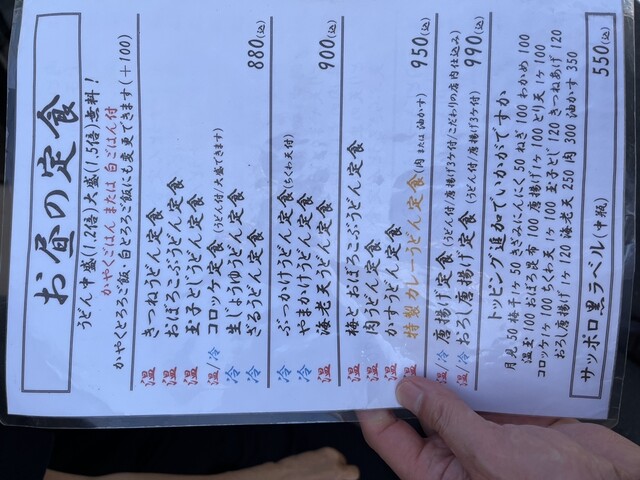 お昼の定食
うどん中盛(1.2倍)大盛(1.5倍)無料！
かやくごはん または 白ごはん付
かやくとろろご飯・白とろろご飯にも変更できます(＋100)
温 きつねうどん定食
温 おぼろこぶうどん定食
温 玉子とじうどん定食
温/冷 コロッケ定食(うどん付/大盛できます)
冷 生じょうゆうどん定食
冷 ざるうどん定食 880(込)
冷 ぶっかけうどん定食(ちくわ天付)
冷 やまかけうどん定食
温 海老天うどん定食 900(込)
温 梅とおぼろこぶうどん定食
温 肉うどん定食
温 かすうどん定食
温 特製カレーうどん定食(肉 または 油かす) 950(込)
温/冷 唐揚げ定食(うどん付/唐揚げ3ケ付/こだわりの店肉仕込み)
温/冷 おろし唐揚げ定食(うどん付/唐揚げ3ケ付) 990(込)
トッピング追加でいかがですか
月見 50 梅干1ケ 50 きざみにんにく 50 ねぎ 100 わかめ 100
温玉 100 おぼろ昆布 100 唐揚げ1ケ 100 とり天 1ケ 100
コロッケ1ケ 100 ちくわ天 1ケ 100 玉子とじ 120 きつねあげ 120
おろし唐揚げ 1ケ 120 海老天 250 肉 300 油かす 350
サッポロ黒ラベル(中瓶) 550(込)